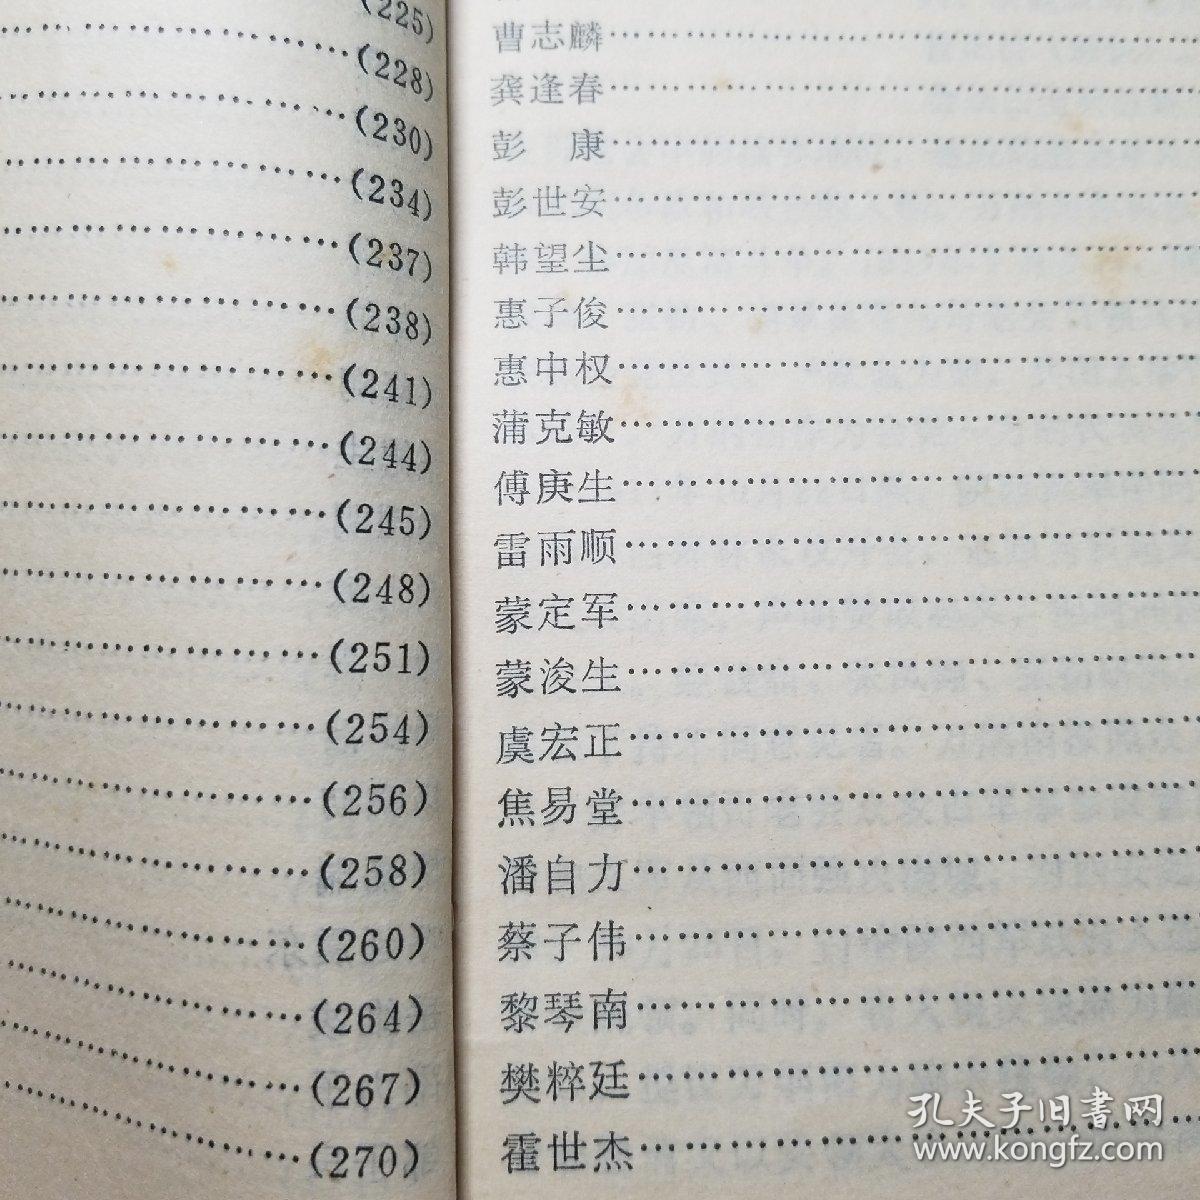 (225)
(228)
(230)
(234)
(237)
(238)
(241)
(244)
(245)
(248)
(251)
(254)
(256)
(258)
(260)
(264)
(267)
(270)
曹志麟
龚逢春
彭　康
彭世安
韩望尘
惠子俊
惠中权
蒲克敏
傅庚生
雷雨顺
蒙定军
蒙浚生
虞宏正
焦易堂
潘自力
蔡子伟
黎琴南
樊粹廷
霍世杰
孔夫子旧书网
www.kongfz.com